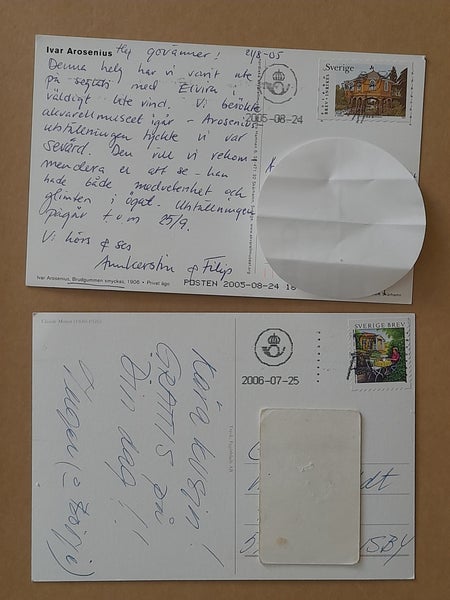 Ivar Arosenius
Hej govänner! 21/8-05
Denna helg har vi varit ute
på segeltur med Elvira i
väldigt lite vind. Vi besökte
akvarellmuseet igår - Arosenius
utställningen tyckte vi var
sevärd. Den vill vi rekom-
mendera er att se - han
hade både medvetenhet och
glimten i ögat. Utställningen
pågår t o m 25/9.
Vi hörs & ses
Annkerstin & Filip
Ivar Arosenius, Brudgummen smyckas, 1906 • Privat ägo
Sverige
2005-08-24
POSTEN 2005-08-24 18
Kära kusin!
GRATTIS på
Din dag!!
SVERIGE BREV
2006-07-25